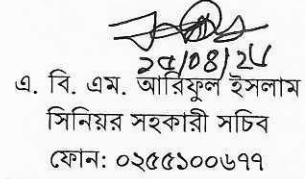 ২৫/০৪/২৫
এ. বি. এম. আরিফুল ইসলাম
সিনিয়র সহকারী সচিব
ফোন: ০২৫৫১০০৬৭৭